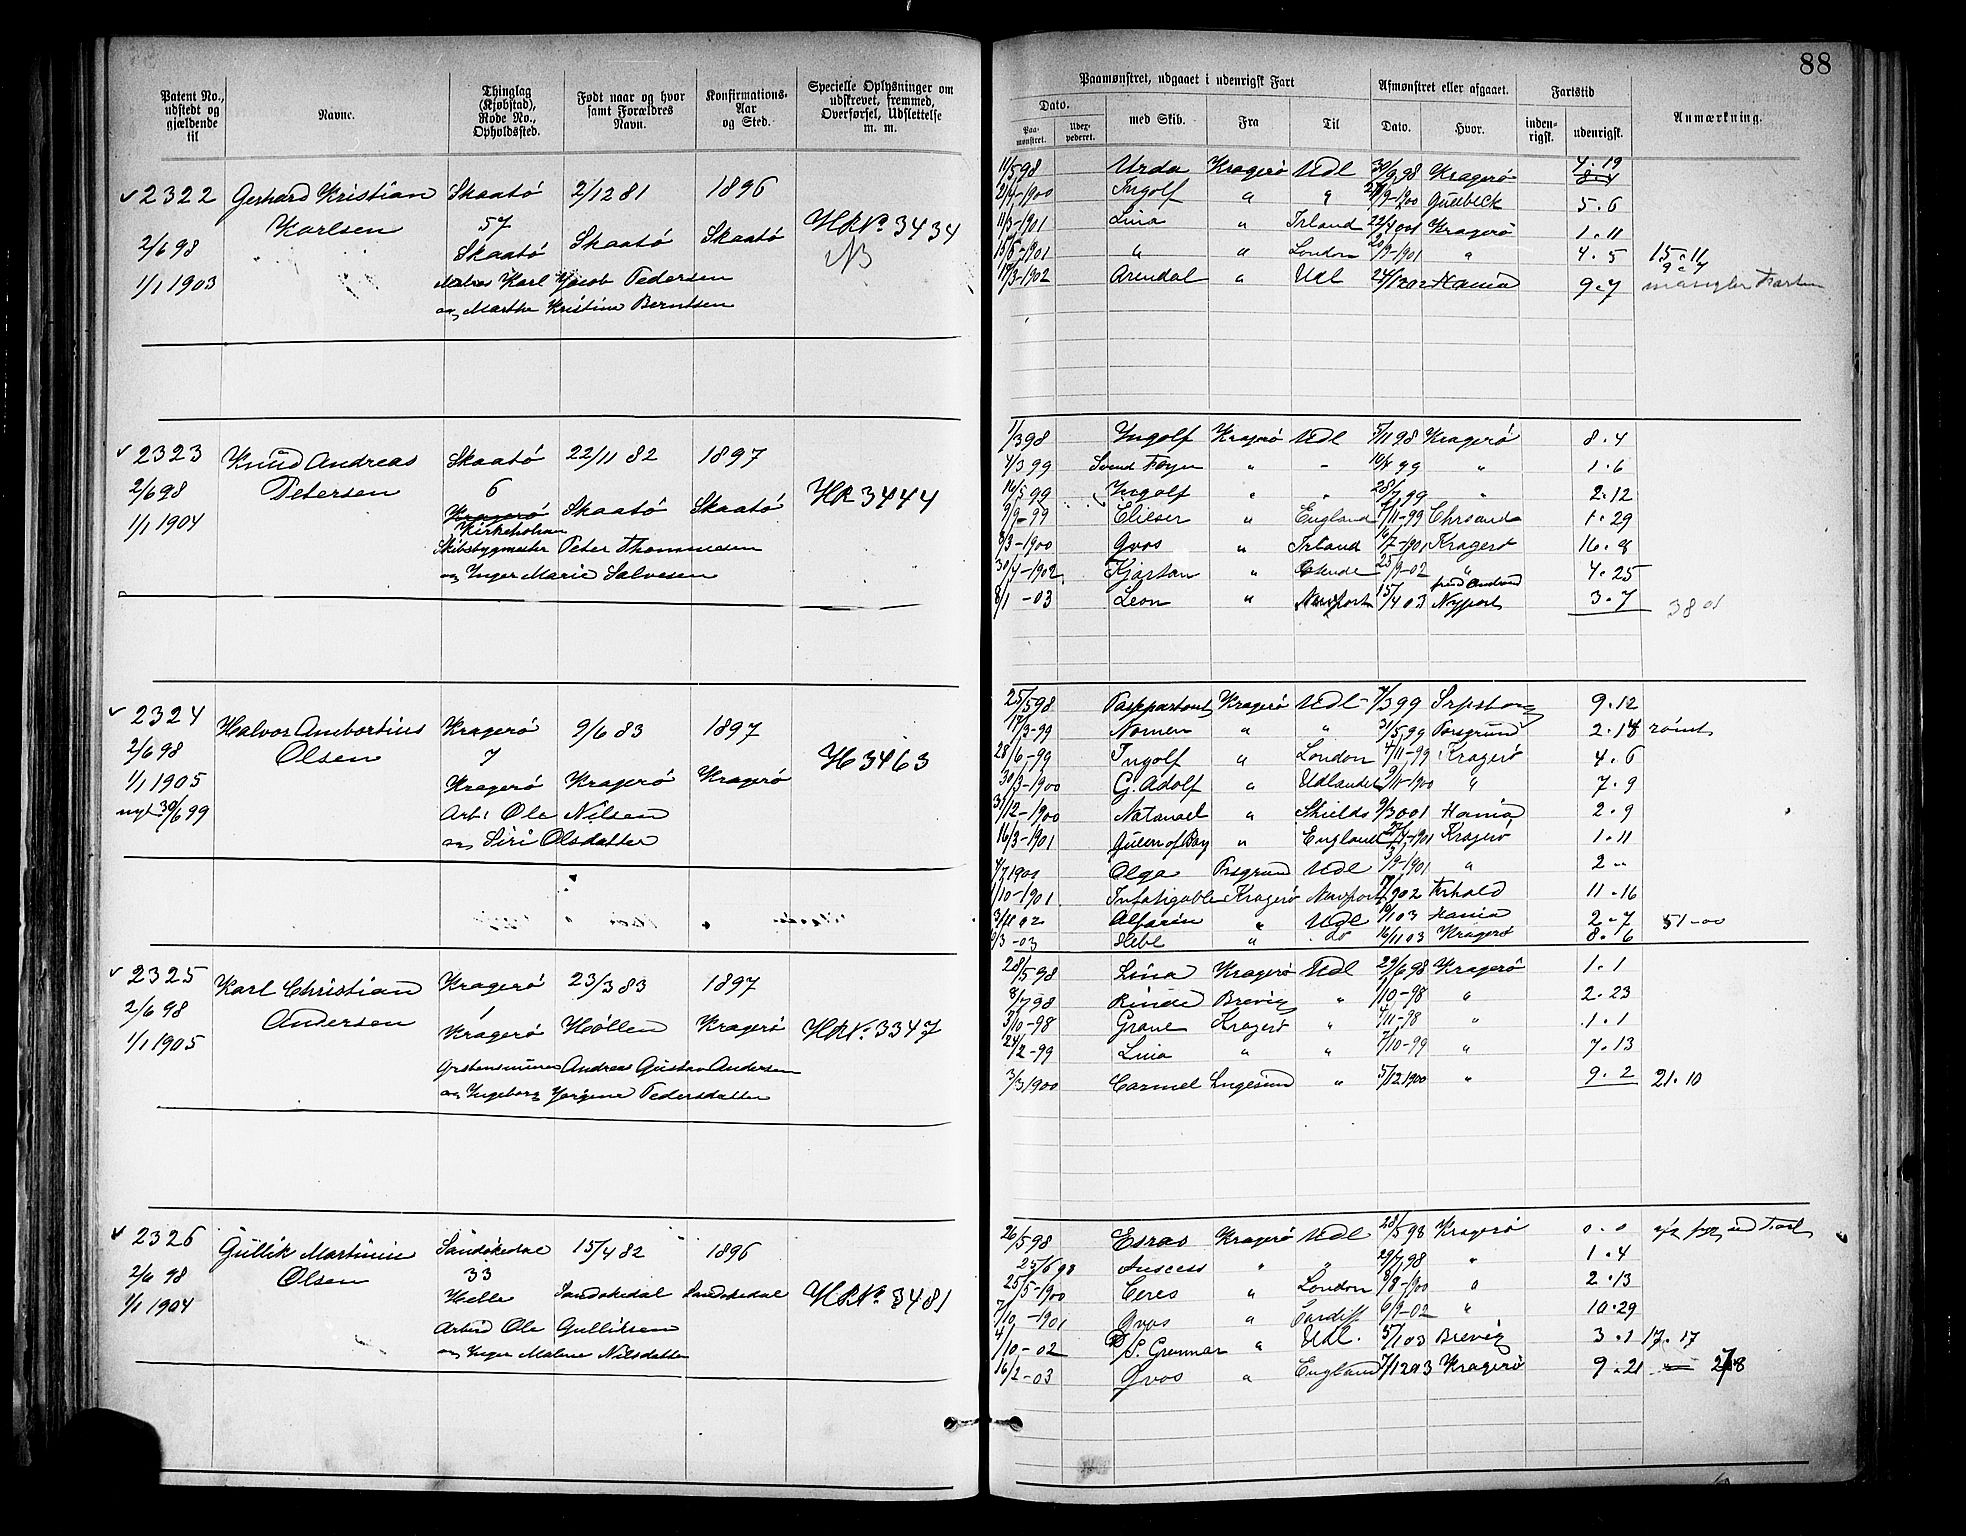 88
Patent No., udstedt og gjældende til
Navne.
Thinglag (Kjøbstad), Rode No., Opholdssted.
Født naar og hvor samt Forældres Navn.
Konfirmations- Aar og Sted.
Specielle Oplysninger om udskrevet, fremmed, Overførsel, Udslettelse m. m.
2322 Gerhard Kristian Skaatö 2/12 81 1896
Karlsen 57 HRNo. 3434
2/6 98 Skaatö Skaatö Skaatö NB
1/1 1903 Karl Jacob Pedersen
og Marthe Kristine Berntsen
2323 Knud Andreas Skaatö 22/11 82 1897
2/6 98 Petersen 6 HR 3444
1/1 1904 Kragerö Skaatö Skaatö
Kirkeholmen
Skibsbygmester Peter Thommesen
og Inger Marie Salvesen
2324 Halvor Ambortius Kragerö 9/6 83 1897
2/6 98 Olsen 7 H 3463
1/1 1905 Kragerö Kragerö Kragerö
nyt 30/6 99 Arb. Ole Nilsen
og Siri Olsdatter
2325 Karl Christian Kragerö 23/3 83 1897
2/6 98 Andersen 1
1/1 1905 Kragerö Höllen Kragerö HRNo. 3347
Andreas Gustav Andersen
og Ingeborg Jörgine Pedersdatter
2326 Gullik Martinius Sandökedal 15/4 82 1896
2/6 98 Olsen 33
1/1 1904 Helle Sandökedal Sandökedal HRNo. 3481
Arbeid Ole Gulliksen
og Inger Malene Nilsdatter
Paamønstret, udgaaet i udenrigsk Fart
Afmønstret eller afgaaet.
Fartstid
Anmærkning.
Dato.
Paa- mønstret.
Udex- pederet.
med Skib.
Fra
Til
Dato.
Hvor.
inden- rigsk.
udenrigsk.
11/5 98 Urda Kragerö Udl 30/9 98 Kragerö 4.19
2/4-1900 Ingolf " " 27/9-1900 5.6
11/3-1901 Lina " Irland 22/4 001 Kragerö 1.11
15/5-1901 " " London 20/9-1901 " 4.5 15.11
17/3-1902 Arendal " Udl Hamia 9.7 mangler Farten
1/3 98 Ingolf Kragerö Udl 5/11 98 Kragerö 8.4
4/3 99 Svend Foyn " " 10/4 99 " 1.6
16/5 99 Ingolf " " 28/7 99 " 2.12
9/9-99 Elieser " England 7/11-99 Chrsand 1.29
8/3-1900 Qvos " Irland 16/7-1901 Kragerö 16.8
30/4-1902 Kjartan " Ostende 25/9-02 " 4.25
8/1-03 Leon " Newport 15/4 03 Nyport 3.7 38 01
25/5 98 Paspartout Kragerö Udl 7/3 99 9.12
17/3-99 Nornen " " 31/5 99 Porsgrund 2.14 römt
28/6-99 Ingolf " London 4/11-99 Kragerö 4.6
30/3-1900 G. Adolf " Udlandet 9/11-1900 " 7.9
31/12-1900 Natanael " Shields 9/3 001 Hamia 2.9
16/3-1901 Queen of Bay " England 27/4-1901 Kragerö 1.11
4/7 1901 Olga Prsgrund Udl 3/9-1901 " 2 "
1/10-1901 Infatigable Kragerö Newport Frhald 11.16
Alfarin " Udl 10/1 03 Hamia 2.7 51-00
-03 Hebe " do 16/11 03 Kragerö 8.6
28/5 98 Lina Kragerö Udl 29/6 98 Kragerö 1.1
8/7 98 Rinde Brevig " 1/10-98 " 2.23
3/10-98 Grane Kragerö " 4/11-98 " 1.1
24/2-99 Lina " " 7/10-99 " 7.13
3/3 1900 Carmel Lngesund " 5/12 1900 " 9.2 21.10
26/5 98 Esras Kragerö Udl 28/5 98 Kragerö 0.0
25/6 98 Success " " 29/7 98 " 1.4
25/5-1900 Ceres " London 8/8-1900 " 2.13
7/10-1901 Qvos " Cardiff 6/9-02 " 10.29
4/10-02 P. Grennar " Udl. 5/1 03 Brevig 3.1 17.17
16/2-03 Qvos " England 7/12 03 Kragerö 9.21 278